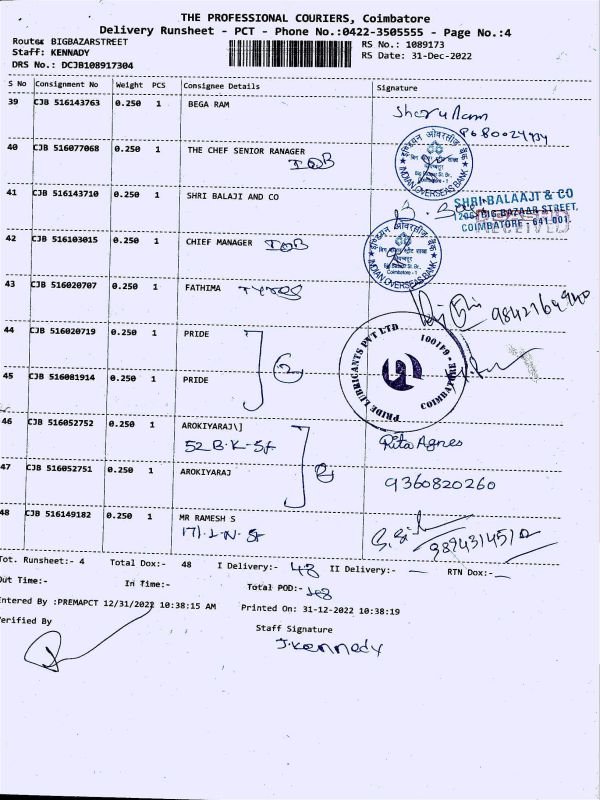 THE PROFESSIONAL COURIERS, Coimbatore
Delivery Runsheet - PCT - Phone No.:0422-3505555 - Page No.:4
Route: BIGBAZARSTREET
Staff: KENNADY
DRS No.: DCJB108917304
RS No.: 1089173
RS Date: 31-Dec-2022
S No Consignment No Weight PCS Consignee Details Signature
39 CJB 516143763 0.250 1 BEGA RAM
40 CJB 516077068 0.250 1 THE CHEF SENIOR RANAGER
IOB
इण्डियन ओवरसीज़ बैंक
INDIAN OVERSEAS BANK
41 CJB 516143710 0.250 1 SHRI BALAJI AND CO
SHRI BALAAJI & CO
206, BIG BAZAAR STREET,
COIMBATORE - 641 001.
RECEIVED
42 CJB 516103015 0.250 1 CHIEF MANAGER IOB
इण्डियन ओवरसीज़ बैंक
Coimbatore - 1
INDIAN OVERSEAS BANK
43 CJB 516020707 0.250 1 FATHIMA
44 CJB 516020719 0.250 1 PRIDE
45 CJB 516081914 0.250 1 PRIDE
PRIDE LUBRICANTS PVT LTD
COIMBATORE - 641001
46 CJB 516052752 0.250 1 AROKIYARAJ\]
52 B.K-St
Rita Agnes
47 CJB 516052751 0.250 1 AROKIYARAJ
9360820260
48 CJB 516149182 0.250 1 MR RAMESH S
171-L-N-St
Tot. Runsheet:- 4 Total Dox:- 48 I Delivery:- 48 II Delivery:- — RTN Dox:- —
Out Time:- In Time:- Total POD:- 48
Entered By :PREMAPCT 12/31/2022 10:38:15 AM Printed On: 31-12-2022 10:38:19
Verified By
Staff Signature
J.Kennedy